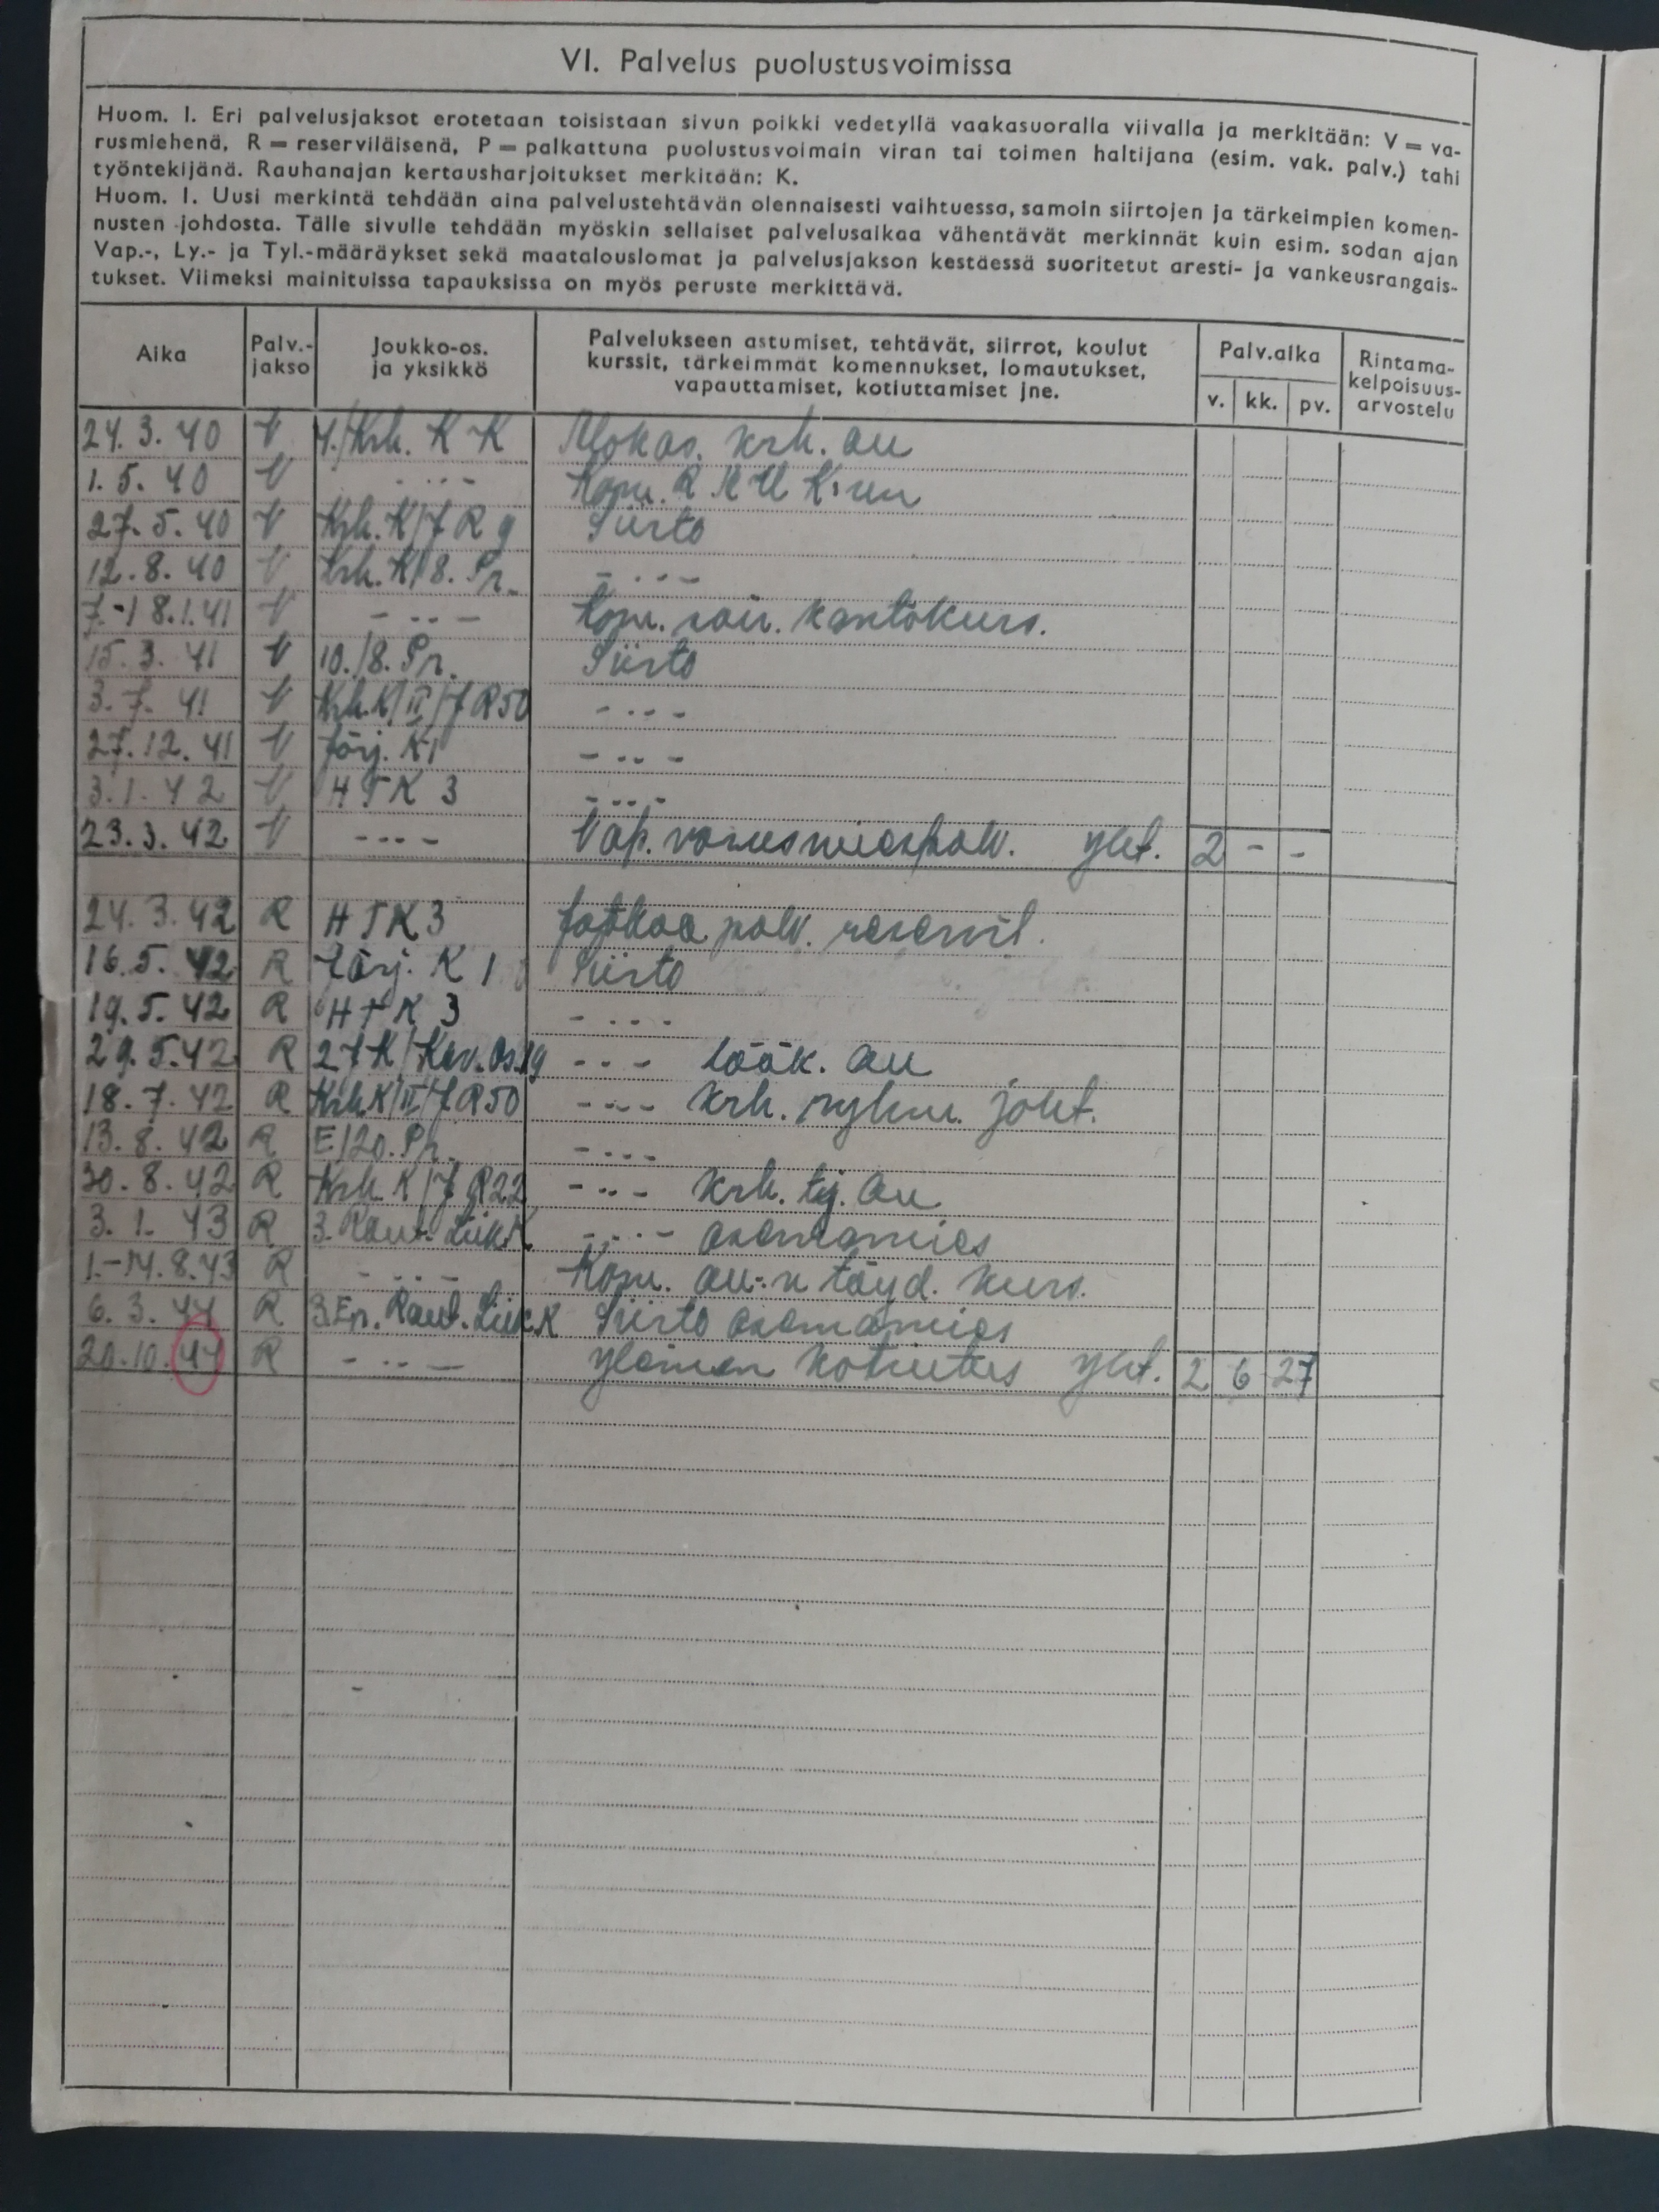 VI. Palvelus puolustusvoimissa
Huom. I. Eri palvelusjaksot erotetaan toisistaan sivun poikki vedetyllä vaakasuoralla viivalla ja merkitään: V = va-
rusmiehenä, R = reserviläisenä, P = palkattuna puolustusvoimain viran tai toimen haltijana (esim. vak. palv.) tahi
työntekijänä. Rauhanajan kertausharjoitukset merkitään: K.
Huom. I. Uusi merkintä tehdään aina palvelustehtävän olennaisesti vaihtuessa, samoin siirtojen ja tärkeimpien komen-
nusten johdosta. Tälle sivulle tehdään myöskin sellaiset palvelusaikaa vähentävät merkinnät kuin esim. sodan ajan
Vap.-, Ly.- ja Tyl.-määräykset sekä maatalouslomat ja palvelusjakson kestäessä suoritetut aresti- ja vankeusrangais-
tukset. Viimeksi mainituissa tapauksissa on myös peruste merkittävä.
Aika Palv.-jakso Joukko-os. ja yksikkö Palvelukseen astumiset, tehtävät, siirrot, koulut kurssit, tärkeimmät komennukset, lomautukset, vapauttamiset, kotiuttamiset jne. Palv.aika v. kk. pv. Rintama-kelpoisuus-arvostelu
24.3.40 V Krh. K K Alokas. krh. au
1.5.40 V - .. - Kom. R A U K:uun
27.5.40 V Krh.K/JR 9 Siirto
12.8.40 V Krh.K/8.Pr. - .. -
7.-18.1.41 V - .. - Kom. kantokurs.
15.3.41 V 10./8.Pr. Siirto
3.7.41 V Krh.K/II/JR50 - .. -
27.12.41 V Järj.K1 - .. -
3.1.42 V HTK 3 - .. -
23.3.42 V - .. - Vap. varusmiespalv. yht. 2 - -
24.3.42 R HTK3 Jatkaa palv. reservil.
16.5.42 R Järj. K 1 Siirto
19.5.42 R HTK 3 - .. -
29.5.42 R 2JK/Kev.Os.19 - .. - lääk. au
18.7.42 R Krh.K/II/JR50 - .. - krh. ryhm. joht.
13.8.42 R E/20.Pr. - .. -
30.8.42 R Krh.K/JR22 - .. - krh. tj. au
3.1.43 R 3.Raut.LiikK. - .. - asemamies
1.-14.8.43 R - .. - Kom. au:n täyd. kurs.
6.3.44 R 3.Er.Raut.LiikK Siirto asemamies
20.10.44 R - .. - yleinen kotiutus yht. 2 6 27